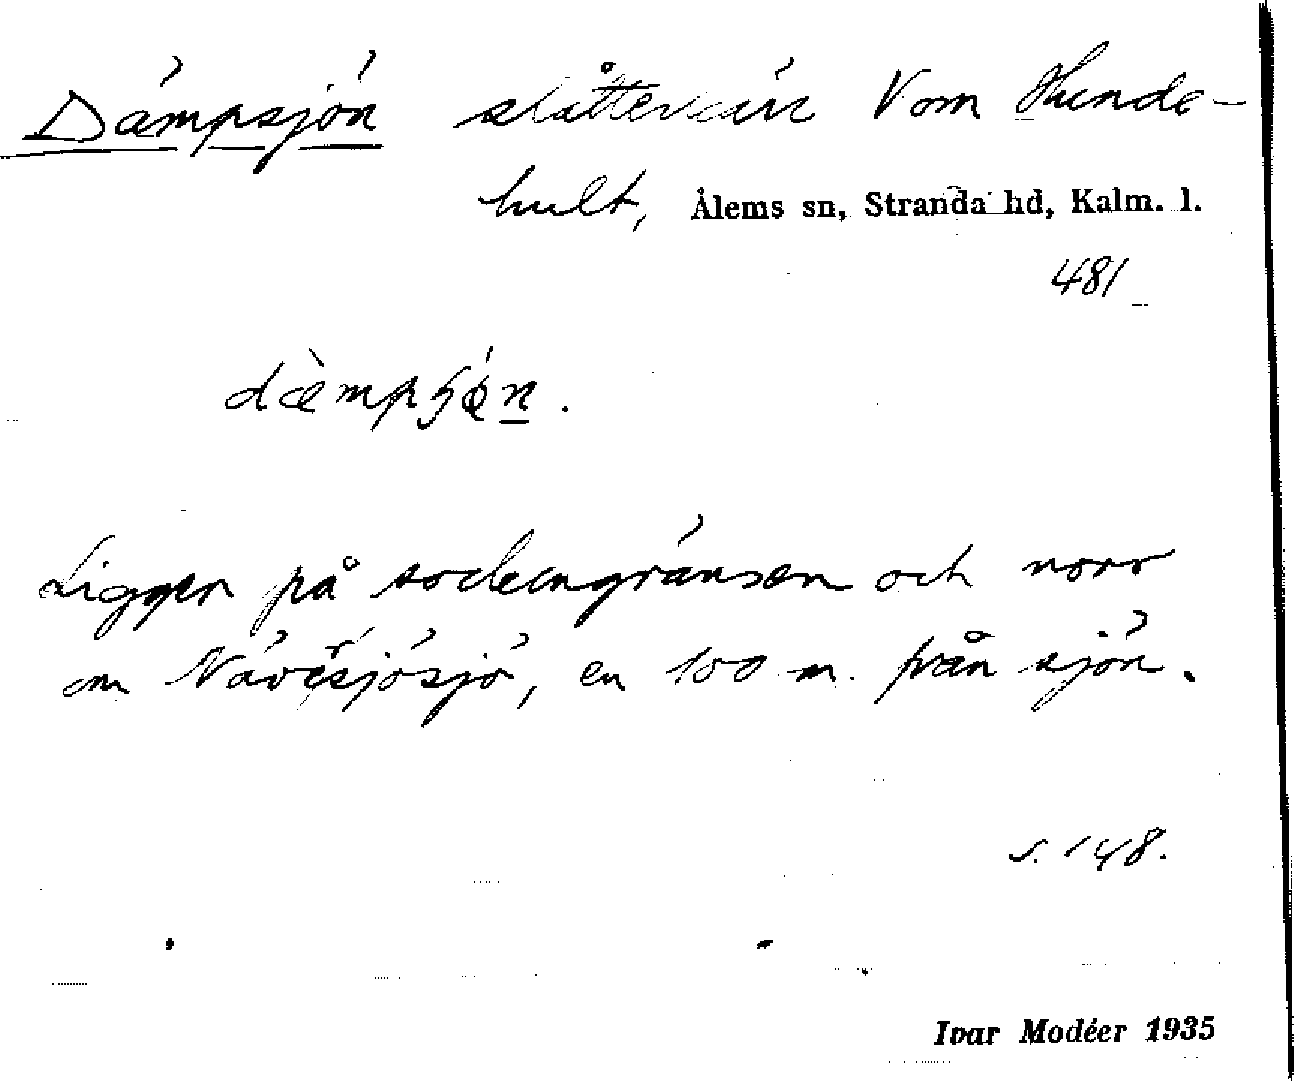 Dämpsjön slåtterkärr V om Hunde-
hult, Ålems sn, Stranda hd, Kalm. l.
481
dæ̀mpʂǿn.
Ligger på sockengränsen och norr
om sjö, en 100 m. från sjön.
s. 148.
Ivar Modéer 1935